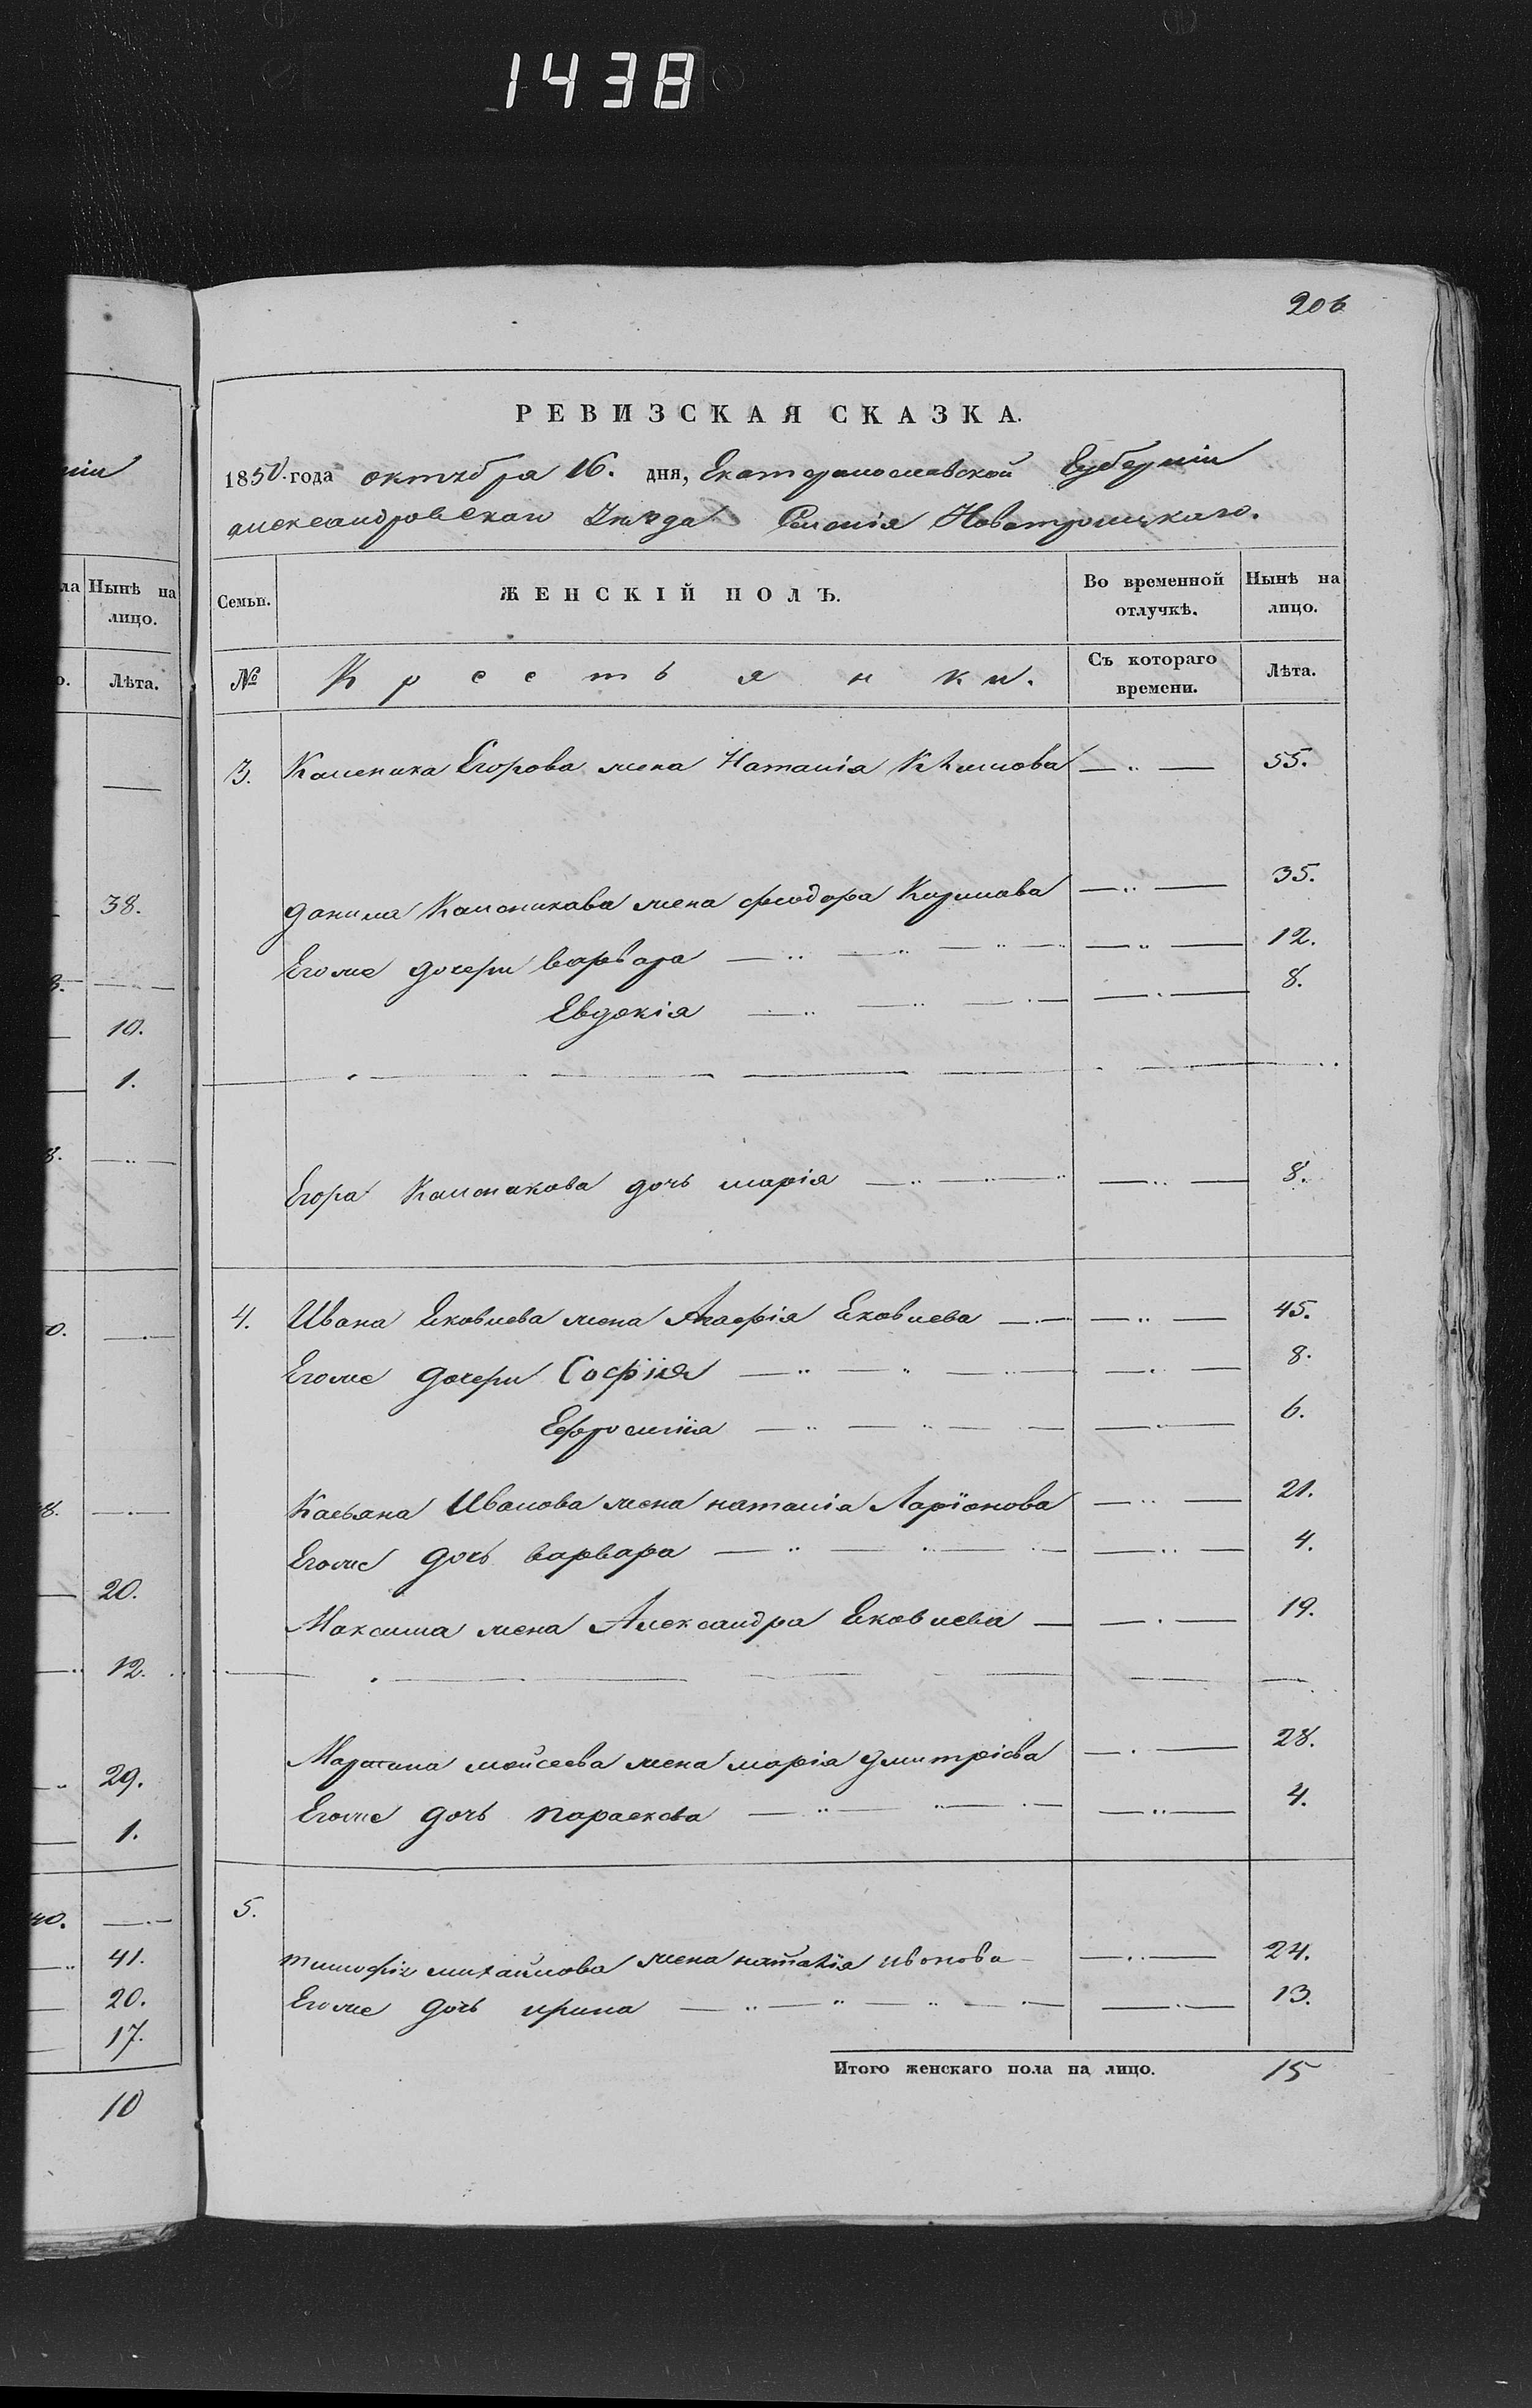 1438
206
ніи
ла Нынѣ на
лицо.
о. Лѣта.
38.
3.
10.
1.
8.
0.
8.
20.
12.
29.
1.
40.
41.
20.
17.
10
РЕВИЗСКАЯ СКАЗКА.
1850. года октября 16. дня, Екатеринославской Губерніи
александровскаго Уѣзда Селенія Новотроицкаго.
Семьи. ЖЕНСКІЙ ПОЛЪ. Во временной отлучкѣ. Нынѣ на лицо.
№ Крестьянки. Съ котораго времени. Лѣта.
3. Каленика Егорова жена Наталія Климова 55.
данила Каленикова жена феодора Кирилова 35.
Егоже дочери варвара 12.
Евдокія 8.
Егора Каленикова дочь марія 8.
4. Ивана Яковлева жена Яковлева 45.
Егоже дочери Софія 8.
Ефросинія 6.
Касьяна Иванова жена наталія Ларіонова 21.
Егоже дочь варвара 4.
Максима жена Александра Яковлева 19.
Мартина мойсеева жена марія дмитріева 28.
Егоже дочь параскева 4.
5.
тимофія михайлова жена наталія иванова 24.
Егоже дочь ирина 13.
Итого женскаго пола на лицо. 15